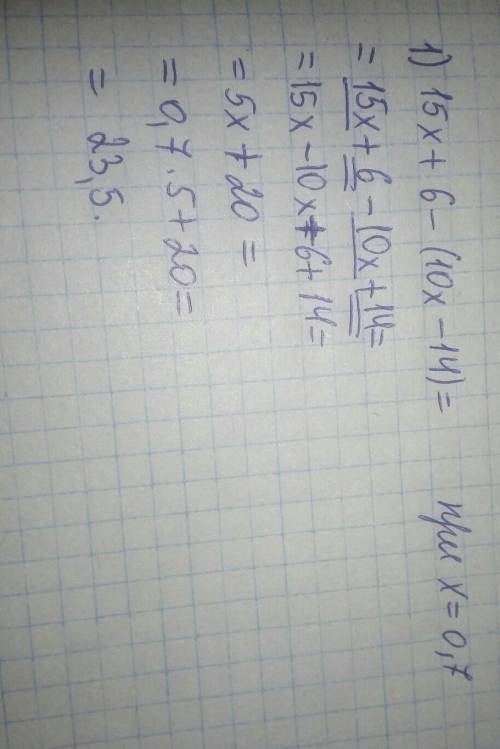 1) 15x + 6 - (10x - 14) = при x = 0,7
= 15x + 6 - 10x + 14 =
= 15x - 10x + 6 + 14 =
= 5x + 20 =
= 0,7 · 5 + 20 =
= 23,5.